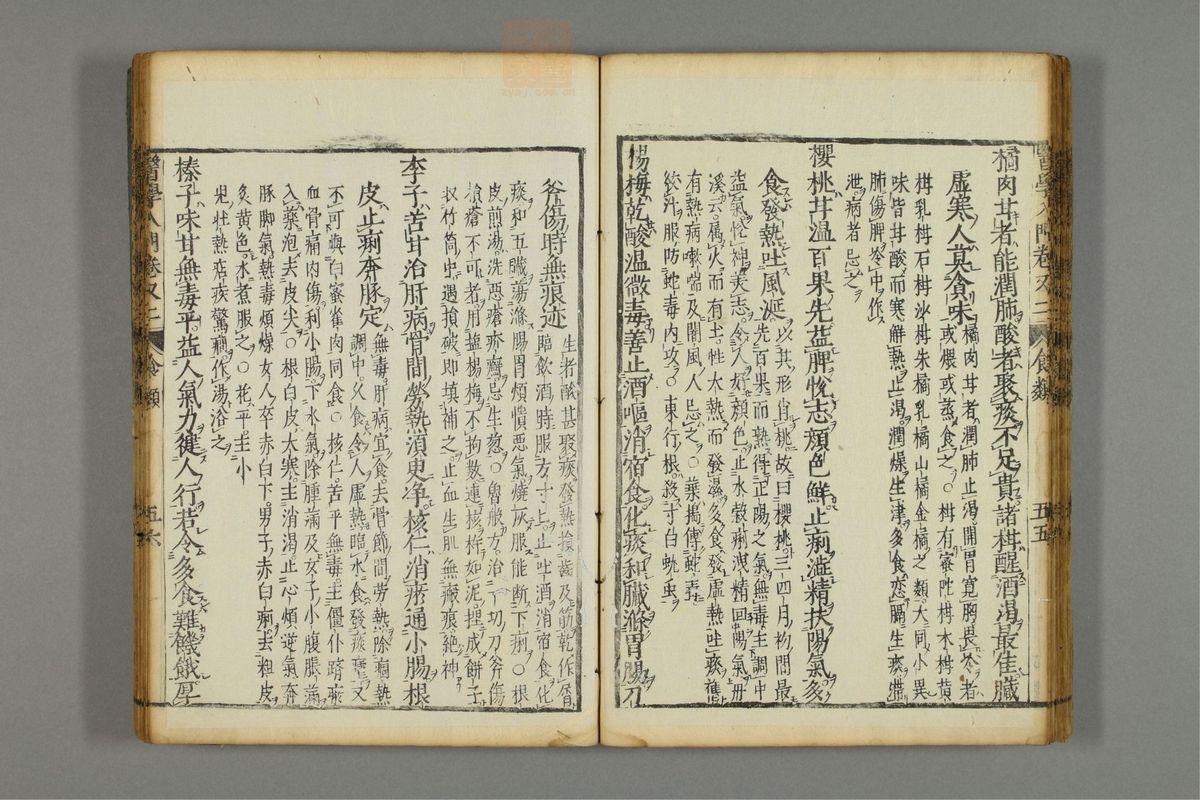 橘肉甘者能潤肺酸者聚痰不足貴諸柑醒酒渴最佳臟
虛寒人莫貪味
橘肉甘者潤肺止渴開胃寬胸畏冷者
或煨或蒸食之○柑有霜陀柑木柑黃
柑乳柑石柑沙柑朱橘乳橘山橘金橘之類大同小異
味皆甘酸而寒解熱止渴潤燥生津多食恋膈生痰滯
肺傷脾冷中作
泄病者忌之
櫻桃甘溫百果先益脾悅志顏色鮮止痢澁精扶陽氣多
食發熱吐風涎
以其形肖桃故曰櫻桃三四月初間最
先百果而熟得正陽之氣無毒主調中
益氣忺神美志令人好顏色止水穀痢洩精回陽氣丹
溪云属火而有土性大熱而發濕多食發虛熱吐痰舊
有熱病嗽喘及闇風人忌之○葉搗傅蛇毒
絞汁服防蛇毒內攻○東行根殺寸白蚘虫
楊梅乾酸溫微毒善止酒嘔消宿食化痰和臟滌胃腸刀
醫學入門卷又二 食類 五五
斧傷時無痕迹
生者酸甚聚痰發熱損齒及筋乾作屑
臨飲酒時服方寸上止吐酒消宿食化
痰和五臟蕩滌腸胃煩憒惡氣燒灰服能断下痢○根
皮煎湯洗惡瘡疥癬忌生葱○魯般方治一切刀斧傷
損瘡不可者用盐楊梅不拘数連核杵如泥捏成餅子
収竹筒中遇損破即填補之止血生肌無瘢痕絶神
李子苦甘治肝病骨間勞熱湏更净核仁消瘀通小腸根
皮止痢奔豚定
無毒肝病宜食去骨節間勞熱除痼熱
調中久食令人虛熱臨水食發痰瘧又
不可與白蜜雀肉同食○核仁苦平無毒主僵仆踒瘀
血骨痛肉傷利小腸下水氣除腫滿及女子小腹脹滿
入藥泡去皮尖○根白皮大寒主消渴止心煩逆氣奔
豚脚氣熱毒煩燥女人卒赤白下男子赤白痢去粗皮
炙黃色水煮服之○花平主小
兒壯熱痁疾驚癇作湯浴之
榛子味甘無毒平益人氣力健人行若令多食難饑餓厚
醫學入門卷又二 食類 五六